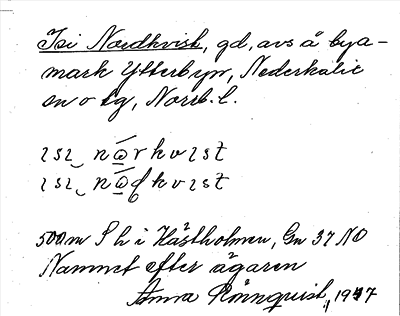 Isi Nordkvist, gd, avs å bya-
mark Ytterbyn, Nederkalix
sn o tg, Norrb. l.
500 m S h i Hästholmen, Gn 37 NO
Namnet efter ägaren
Anna Rönnquist, 1947